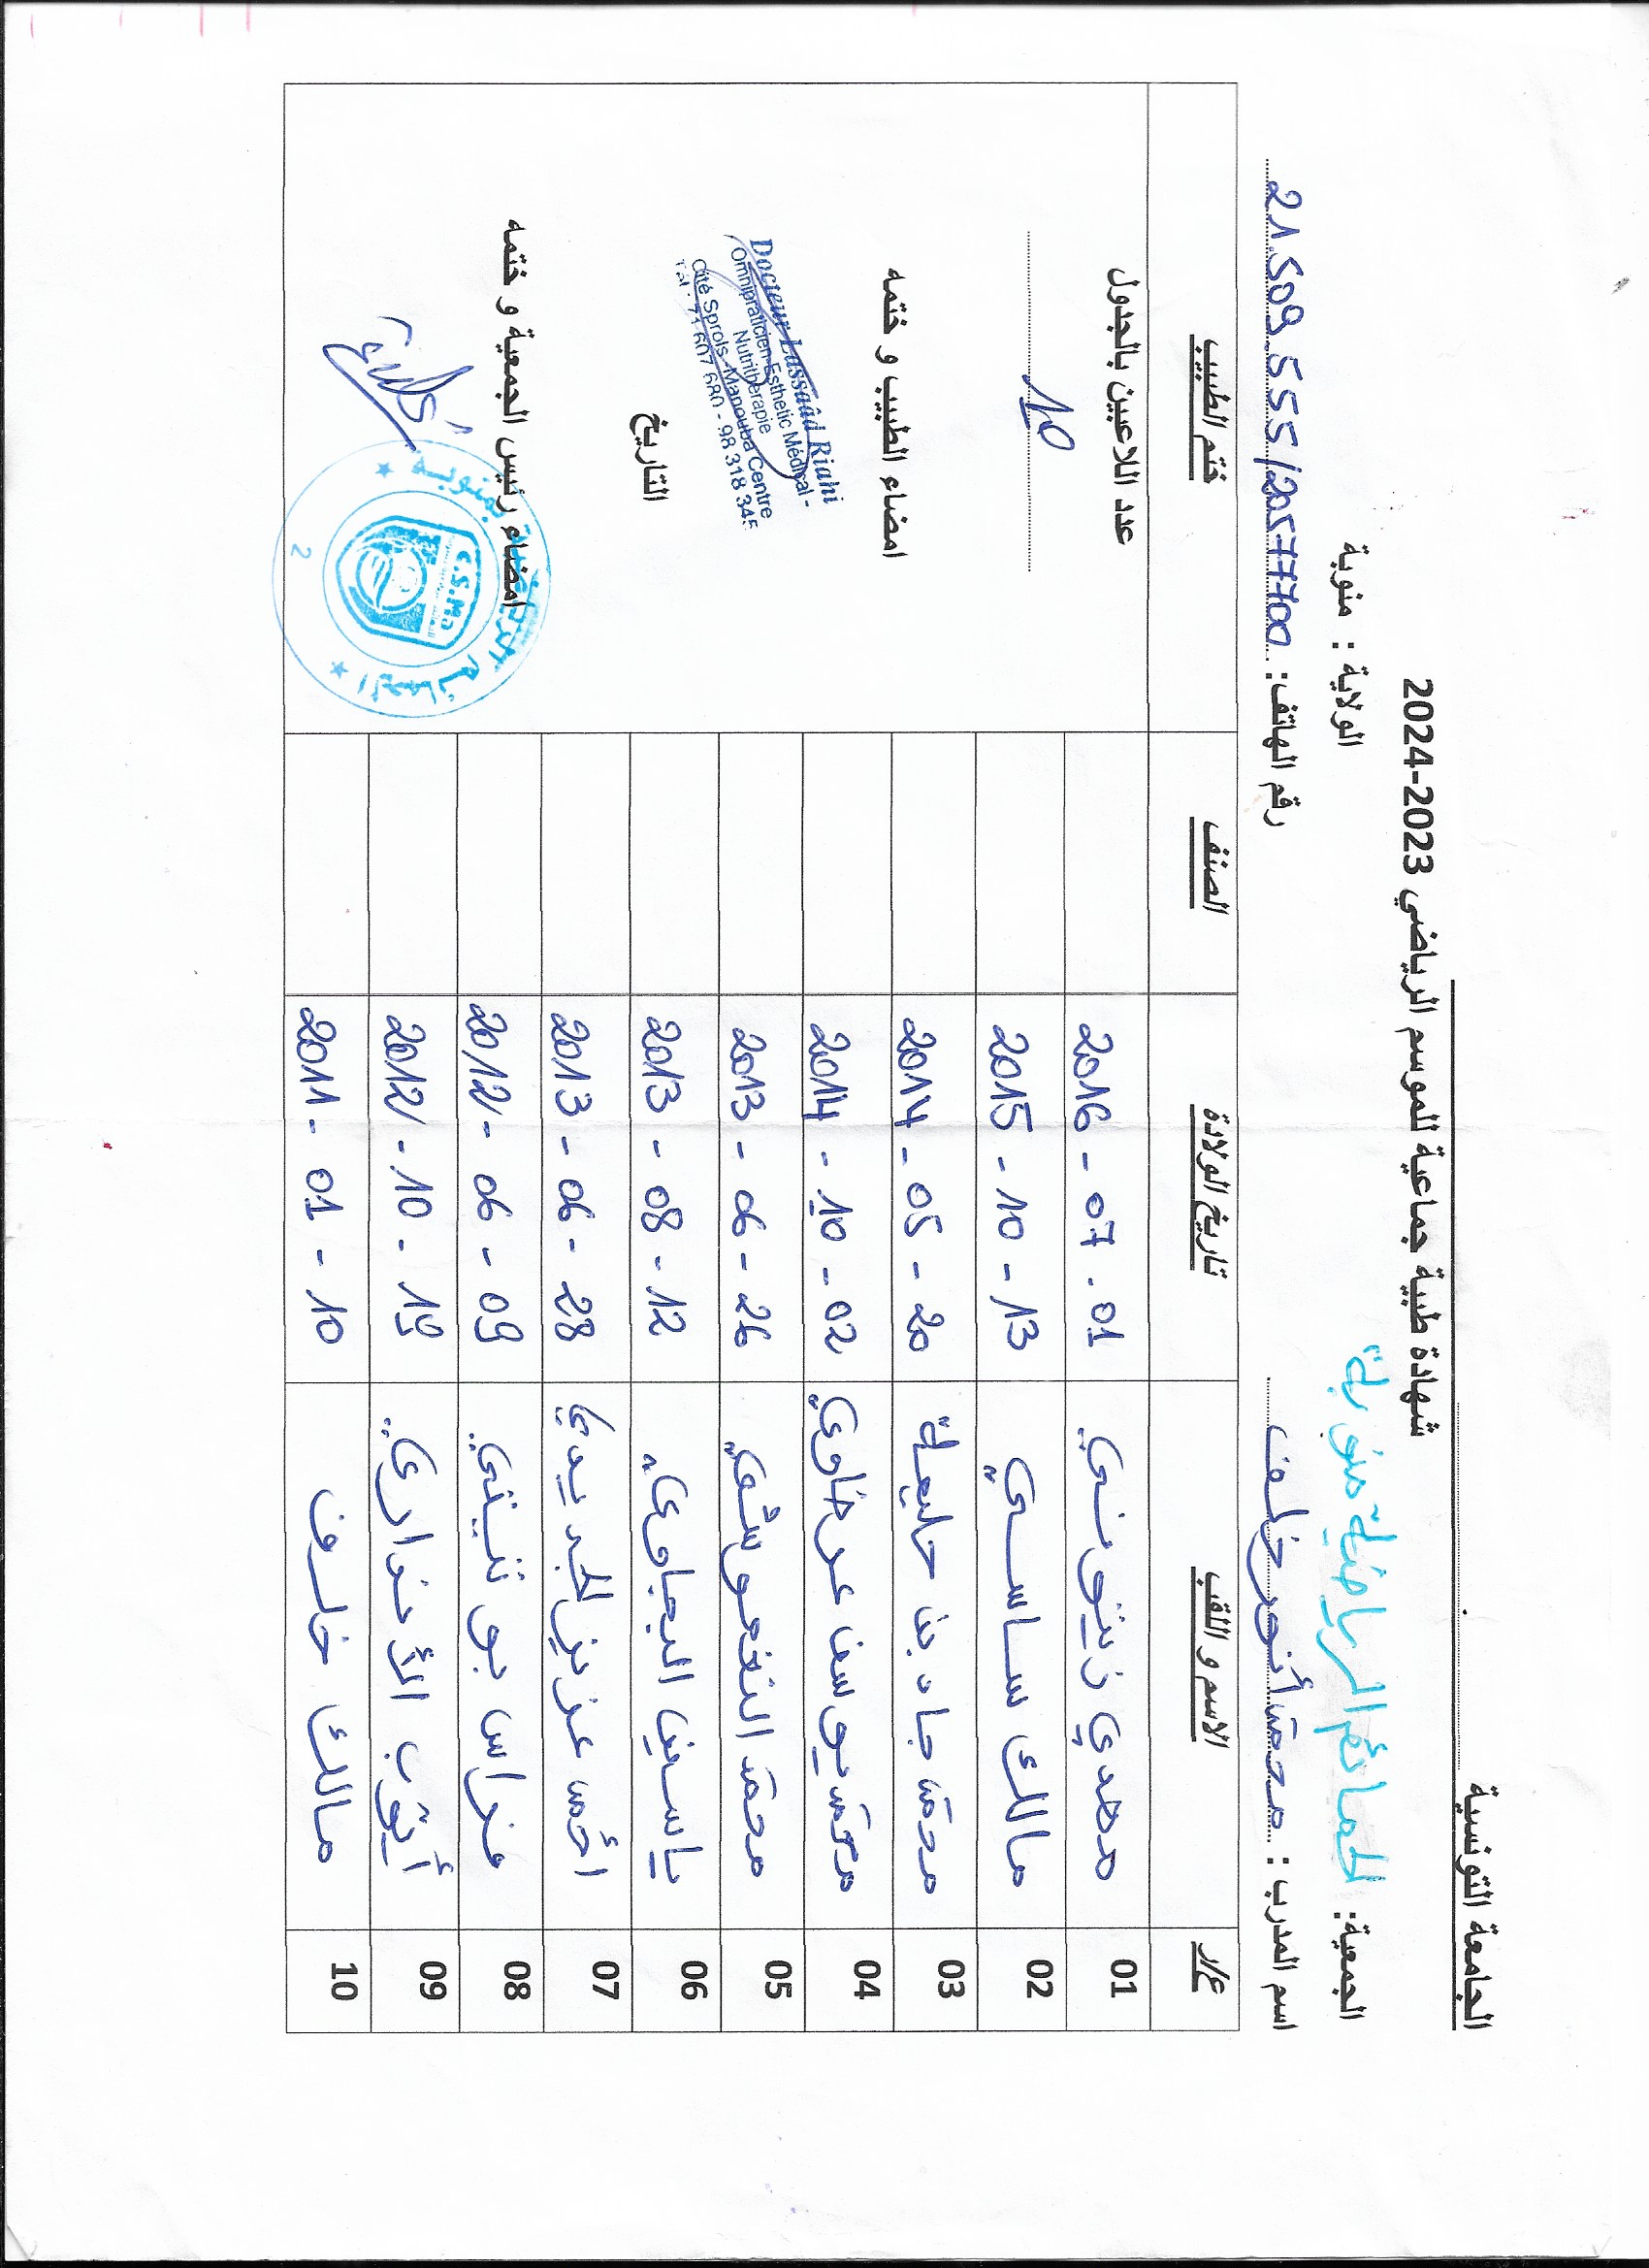 الجامعة التونسية
شهادة طبية جماعية للموسم الرياضي 2023-2024
الجمعية: الحمائم الرياضية بمنوبة الولاية : منوبة
اسم المدرب : محمد أنور خلف رقم الهاتف: 21.509.555/20577700
ع/ر الاسم و اللقب تاريخ الولادة الصنف ختم الطبيب
01 مهدي زيتوني 2016 - 07 - 01
02 مالك ساسي 2015 - 10 - 13
03 محمد جاد بن حليمة 2014 - 05 - 20
04 محمد يوسف عرضاوي 2014 - 10 - 02
05 محمد 2013 - 06 - 26
06 ياسين البجاوي 2013 - 08 - 12
07 أحمد عزيز الجديدي 2013 - 06 - 28
08 فراس بوثنيتي 2012 - 06 - 09
09 أيوب 2012 - 10 - 19
10 مالك خلف 2011 - 01 - 10
عدد اللاعبين بالجدول
10
امضاء الطبيب و ختمه
Docteur Lassaâd Riahi
Omnipraticien-Esthetic Médical -
Nutrithérapie
Cité Sprols -Manouba Centre
Tél : 71 607 680 - 98 318 345
التاريخ
امضاء رئيس الجمعية و ختمه
الحمائم الرياضية بمنوبة
C.S.Ma
2